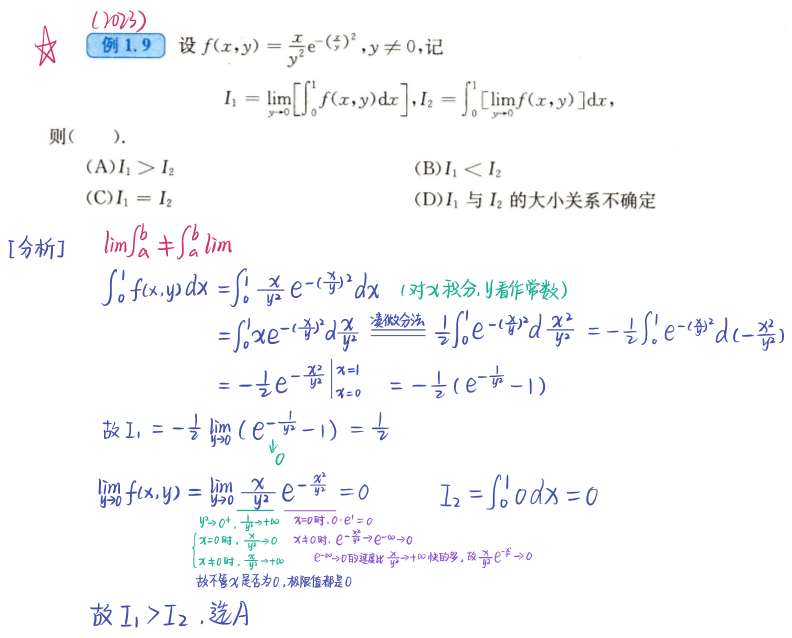 (2023)
例1.9 设 f(x,y) = x/y² e^{-(x/y)²}, y ≠ 0, 记
I₁ = lim_{y→0}[∫₀¹ f(x,y)dx], I₂ = ∫₀¹[lim_{y→0} f(x,y)]dx,
则( ).
(A) I₁ > I₂ (B) I₁ < I₂
(C) I₁ = I₂ (D) I₁ 与 I₂ 的大小关系不确定
[分析] lim∫ₐᵇ ≠ ∫ₐᵇ lim
∫₀¹ f(x,y)dx = ∫₀¹ x/y² e^{-(x/y)²} dx (对x积分,y看作常数)
= ∫₀¹ x e^{-(x/y)²} d x/y² 凑微分法 1/2 ∫₀¹ e^{-(x/y)²} d x²/y² = -1/2 ∫₀¹ e^{-(x/y)²} d(-x²/y²)
= -1/2 e^{-x²/y²} |_{x=0}^{x=1} = -1/2 (e^{-1/y²} - 1)
故 I₁ = -1/2 lim_{y→0} (e^{-1/y²} - 1) = 1/2
↓
0
lim_{y→0} f(x,y) = lim_{y→0} x/y² e^{-x²/y²} = 0 I₂ = ∫₀¹ 0 dx = 0
y²→0⁺, 1/y²→+∞ x=0时, 0·e¹=0
x=0时, x/y²→0 x≠0时, e^{-x²/y²}→e^{-∞}→0
x≠0时, x/y²→+∞ e^{-∞}→0的速度比 x/y²→+∞快的多, 故 x/y² e^{-x²/y²}→0
故不管x是否为0, 极限值都是0
故 I₁ > I₂ , 选A